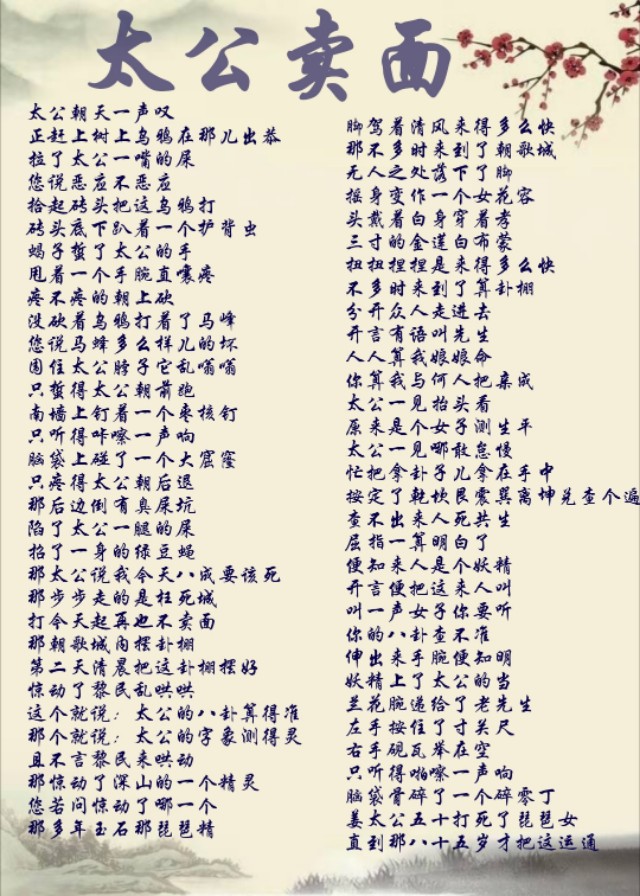 太公卖面
太公朝天一声叹
正赶上树上乌鸦在那儿出恭
拉了太公一嘴的屎
您说恶应不恶应
拾起砖头把这乌鸦打
砖头底下趴着一个护背虫
蝎子蜇了太公的手
甩着一个手腕直嚷疼
疼不疼的朝上砍
没砍着乌鸦打着了马峰
您说马蜂多么样儿的坏
围住太公脖子它乱嗡嗡
只蜇得太公朝前跑
南墙上钉着一个枣核钉
只听得咔嚓一声响
脑袋上碰了一个大窟窿
只疼得太公朝后退
那后边倒有臭屎坑
陷了太公一腿的屎
招了一身的绿豆蝇
那太公说我今天八成要该死
那步步走的是枉死城
打今天起再也不卖面
那朝歌城内摆卦棚
第二天清晨把这卦棚摆好
惊动了黎民乱哄哄
这个就说：太公的八卦算得准
那个就说：太公的字象测得灵
且不言黎民来哄动
那惊动了深山的一个精灵
您若问惊动了哪一个
那多年玉石那琵琶精
脚驾着清风来得多么快
那不多时来到了朝歌城
无人之处落下了脚
摇身变作一个女花容
头戴着白身穿着孝
三寸的金莲白布蒙
扭扭捏捏是来得多么快
不多时来到了算卦棚
分开众人走进去
开言有语叫先生
人人算我娘娘命
你算我与何人把亲成
太公一见抬头看
原来是个女子测生平
太公一见哪敢怠慢
忙把拿卦子儿拿在手中
按定了乾坎艮震巽离坤兑查个遍
查不出来人死共生
屈指一算明白了
便知来人是个妖精
开言便把这来人叫
叫一声女子你要听
你的八卦查不准
伸出来手腕便知明
妖精上了太公的当
兰花腕递给了老先生
左手按住了寸关尺
右手砚瓦举在空
只听得啪嚓一声响
脑袋骨碎了一个碎零丁
姜太公五十打死了琵琶女
直到那八十五岁才把这运通